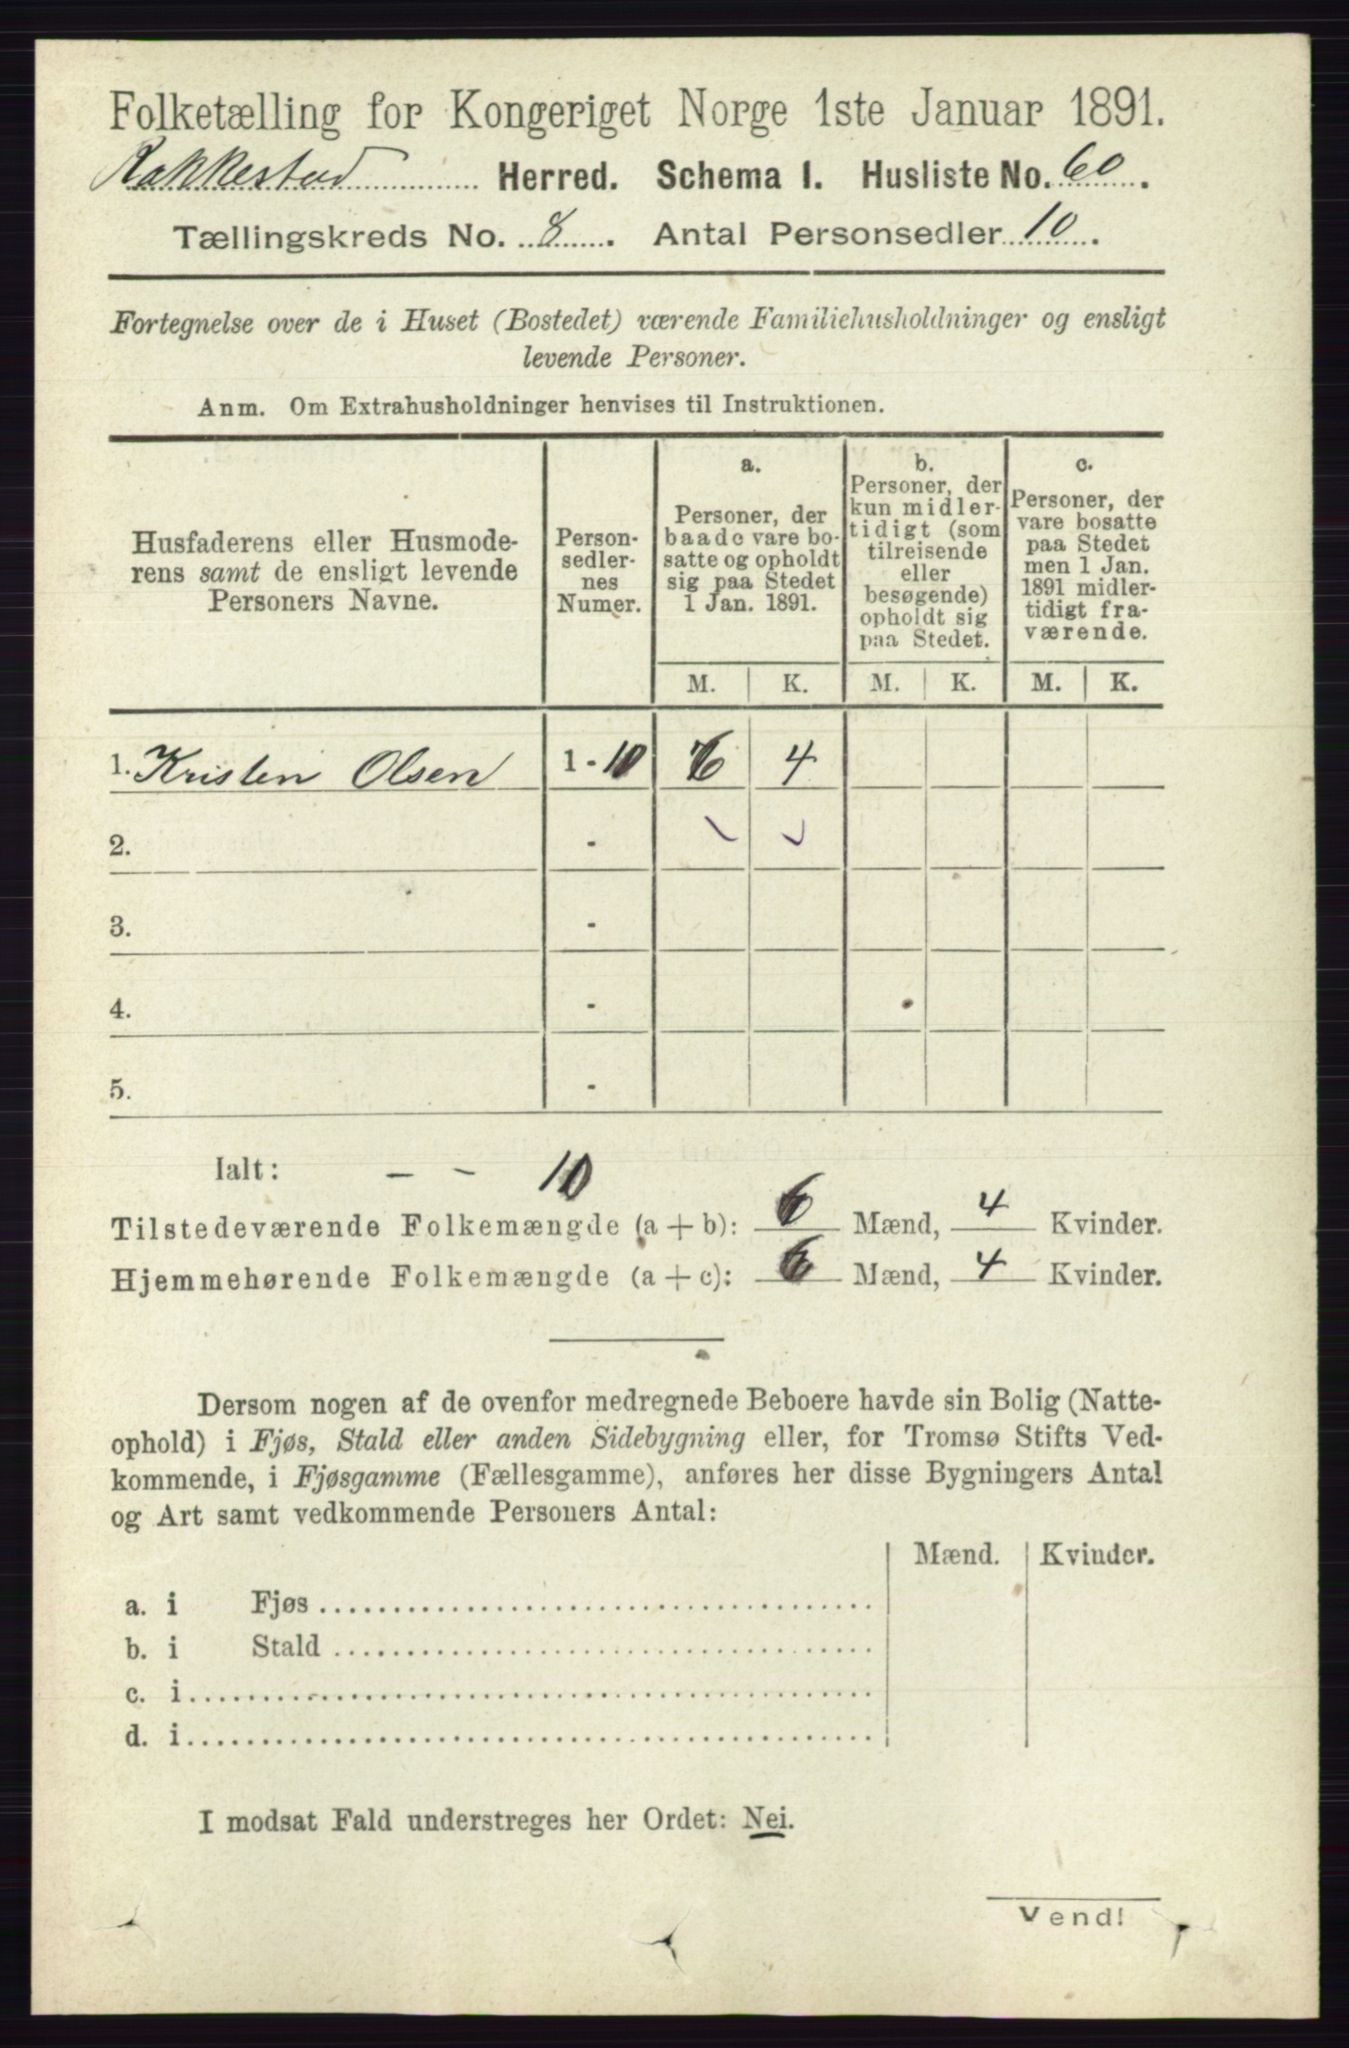 Folketælling for Kongeriget Norge 1ste Januar 1891.
Rakkestad Herred. Schema 1. Husliste No. 60.
Tællingskreds No. 8. Antal Personsedler 10.
Fortegnelse over de i Huset (Bostedet) værende Familiehusholdninger og ensligt
levende Personer.
Anm. Om Extrahusholdninger henvises til Instruktionen.
Husfaderens eller Husmode-
rens samt de ensligt levende
Personers Navne.
Person-
sedler-
nes
Numer.
a.
Personer, der
baade vare bo-
satte og opholdt
sig paa Stedet
1 Jan. 1891.
b.
Personer, der
kun midler-
tidigt (som
tilreisende
eller
besøgende)
opholdt sig
paa Stedet.
c.
Personer, der
vare bosatte
paa Stedet
men 1 Jan.
1891 midler-
tidigt fra-
værende.
M. K. M. K. M. K.
1. Kristen Olsen 1 - 10 6 4
2. -
3. -
4. -
5. -
Ialt: - - 10
Tilstedeværende Folkemængde (a + b): 6 Mænd, 4 Kvinder.
Hjemmehørende Folkemængde (a + c): 6 Mænd, 4 Kvinder.
Dersom nogen af de ovenfor medregnede Beboere havde sin Bolig (Natte-
ophold) i Fjøs, Stald eller anden Sidebygning eller, for Tromsø Stifts Ved-
kommende, i Fjøsgamme (Fællesgamme), anføres her disse Bygningers Antal
og Art samt vedkommende Personers Antal:
Mænd. Kvinder.
a. i Fjøs
b. i Stald
c. i
d. i
I modsat Fald understreges her Ordet: Nei.
Vend!